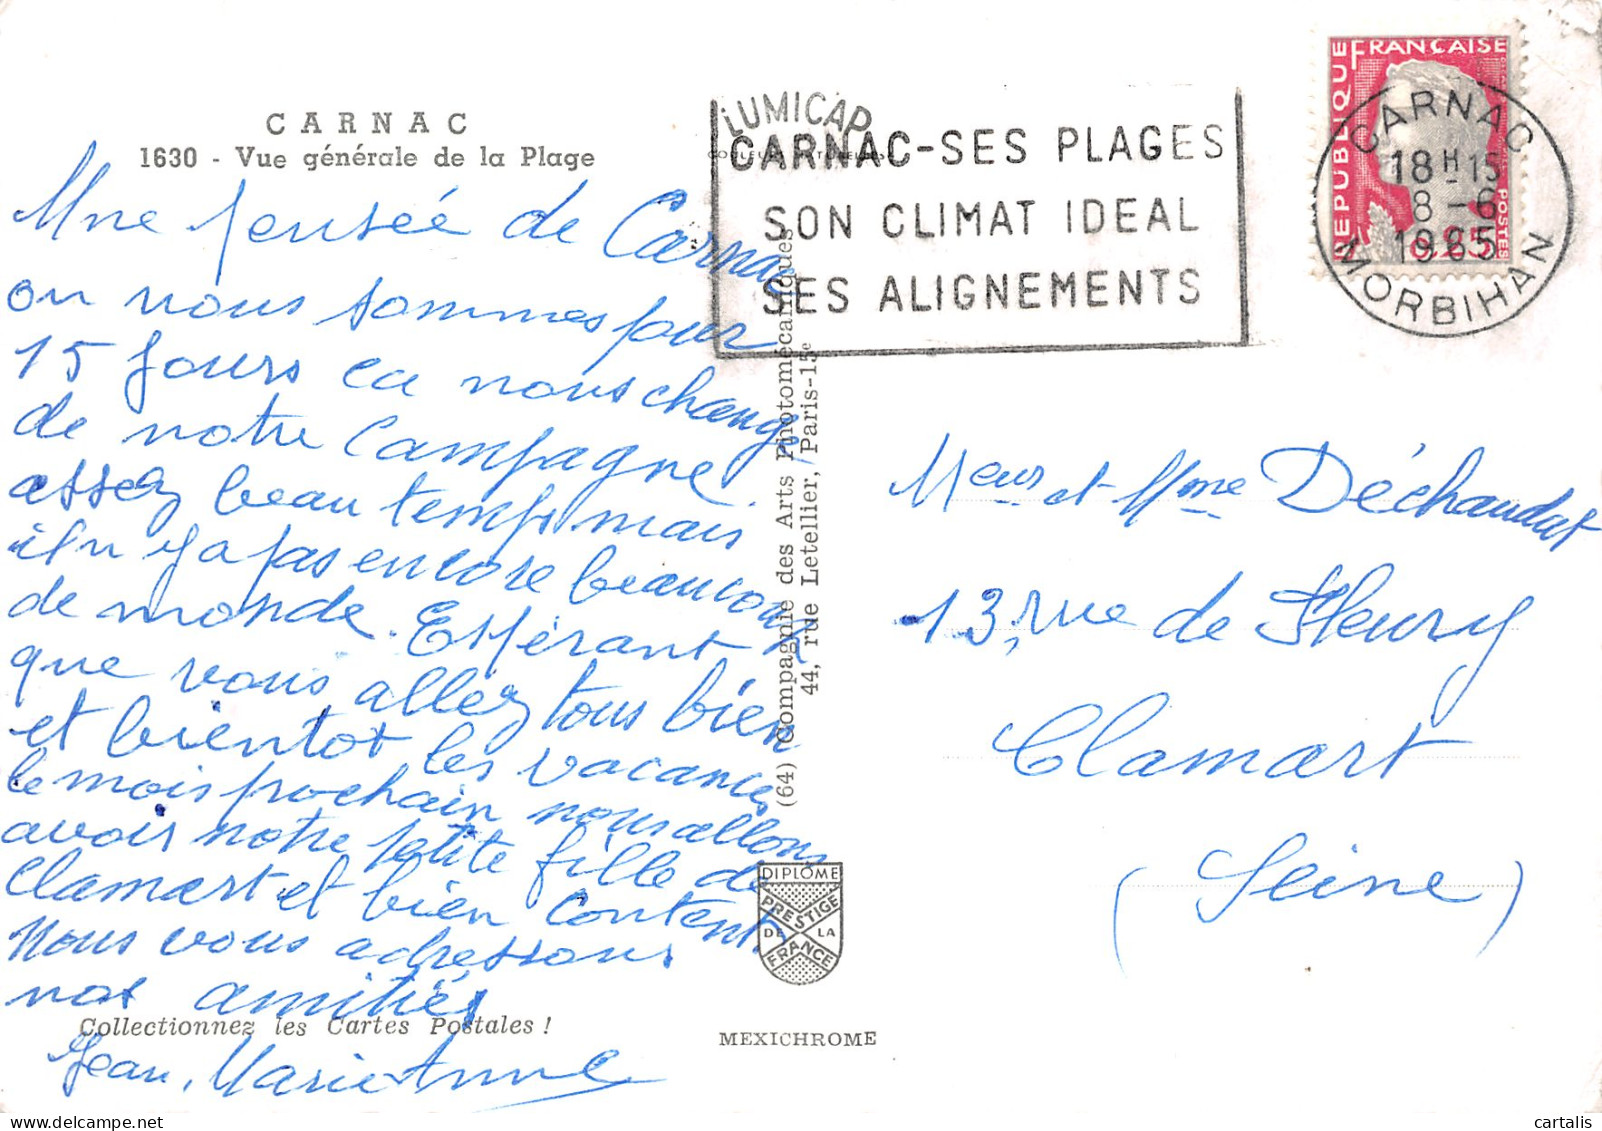 CARNAC
1630 - Vue générale de la Plage
Une pensée de Carnac
ou nous sommes pour
15 jours ca nous change
de notre Campagne
assez beau temps mais
il n y a pas encore beaucoup
de monde. Espérant
que vous allez tous bien
et bientot les vacances
le mois prochain nous allons
avoir notre petite fille de
Clamart et bien content.
Nous vous adressons
nos amitiés
Collectionnez les Cartes Postales !
Jean, Marie Anne
LUMICAP
CARNAC-SES PLAGES
SON CLIMAT IDEAL
SES ALIGNEMENTS
(64) Compagnie des Arts Photomécaniques
44, rue Letellier, Paris-15e
DIPLÔME
PRESTIGE
DE LA
FRANCE
MEXICHROME
REPUBLIQUE FRANÇAISE
POSTES
0,25
CARNAC
18H15
8-6
1965
MORBIHAN
Meur et Mme Déchaudat
13, rue de Fleury
Clamart
(Seine)
delcampe.net
cartalis